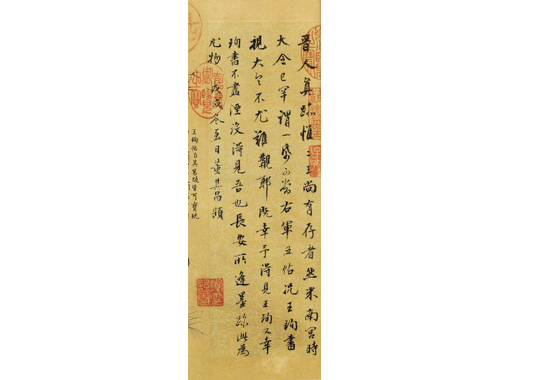 晉人真跡惟二王尚有存者然米南宮時
大令已罕謂一紙可當右軍五帖況王珣書
視大令不尤難覯耶既幸予得見王珣又幸
珣書不盡湮沒得見吾也長安所逢墨跡此為
尤物戊戌冬至日董其昌題
王珣帖與其昌跋皆可寶玩